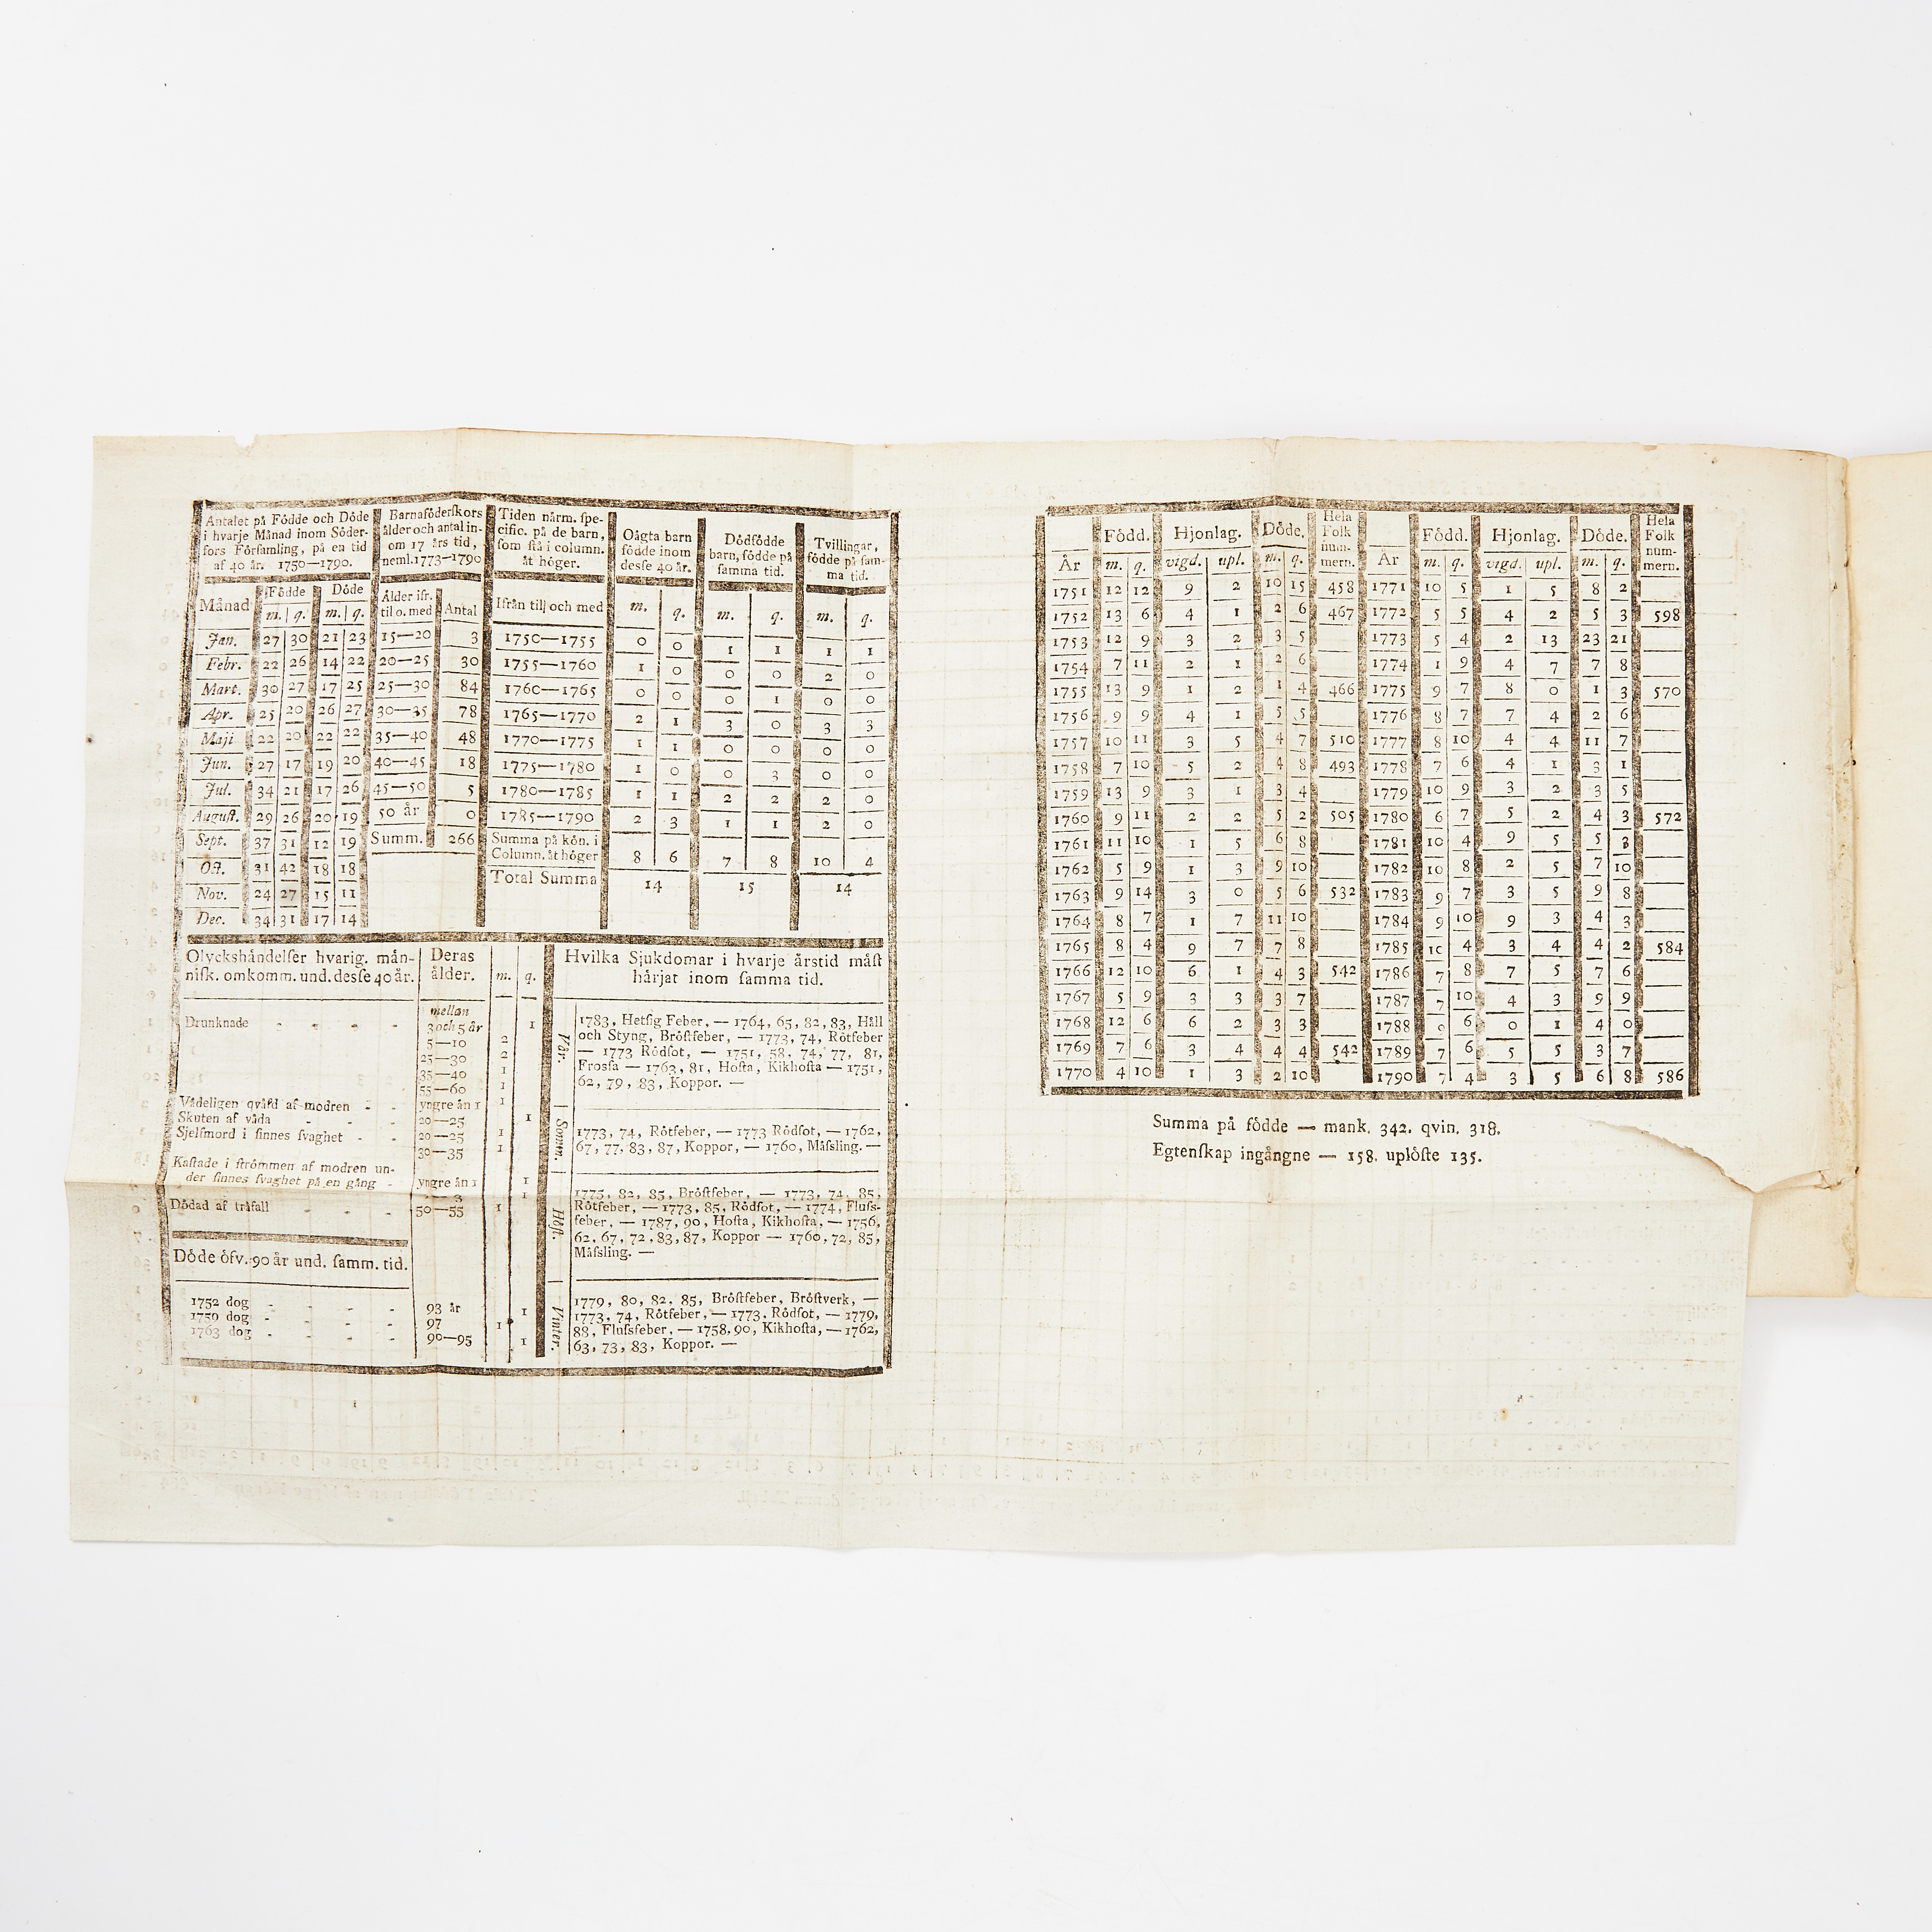 Antalet på Födde och Döde
i hvarje Månad inom Söder-
fors Församling, på en tid
af 40 år. 1750—1790.
Månad Födde Döde
m. q. m. q.
Jan. 27 30 21 23
Febr. 22 26 14 22
Mart. 30 27 17 25
Apr. 25 20 26 27
Maji 22 20 22 22
Jun. 27 17 19 20
Jul. 34 21 17 26
August. 29 26 20 19
Sept. 37 31 12 19
Oct. 31 42 18 18
Nov. 24 27 15 11
Dec. 34 31 17 14
Barnaföderskors
ålder och antal in-
om 17 års tid,
neml. 1773—1790
Ålder ifr.
til o. med Antal
15—20 3
20—25 30
25—30 84
30—35 78
35—40 48
40—45 18
45—50 5
50 år 0
Summ. 266
Tiden närm. spe-
cific. på de barn,
som stå i column.
åt höger.
Oägta barn
födde inom
desse 40 år.
Dödfödde
barn, födde på
samma tid.
Tvillingar,
födde på sam-
ma tid.
Ifrån til och med m. q. m. q. m. q.
1750—1755 0 0 1 1 1 1
1755—1760 1 0 0 0 2 0
1760—1765 0 0 0 1 0 0
1765—1770 2 1 3 0 3 3
1770—1775 1 1 0 0 0 0
1775—1780 1 0 0 3 0 0
1780—1785 1 1 2 2 2 0
1785—1790 2 3 1 1 2 0
Summa på kön. i
Column. åt höger 8 6 7 8 10 4
Total Summa 14 15 14
Olyckshändelser hvarig. män-
nisk. omkomm. und. desse 40 år.
Deras
ålder. m. q.
mellan
Drunknade - - - - 3 och 5 år 1
5—10 2
25—30 2
35—40 1
55—60 1
Vådeligen qväfd af modren - - yngre än 1 1
Skuten af våda - - - 20—25 1
Sjelfmord i sinnes svaghet - - 20—25 1
30—35 1
Kastade i strömmen af modren un-
der sinnes svaghet på en gång - yngre än 1 1
3 1
Dödad af träfall - - - 50—55 1
Döde öfv. 90 år und. samm. tid.
1752 dog - - - - 93 år 1
1759 dog - - - - 97 1
1763 dog - - - - 90—95 1
Hvilka Sjukdomar i hvarje årstid mäst
härjat inom samma tid.
Vår.
1783, Hetsig Feber, — 1764, 65, 82, 83, Håll
och Styng, Bröstfeber, — 1773, 74, Rötfeber
— 1773 Rödsot, — 1751, 58, 74, 77, 81,
Frossa — 1763, 81, Hosta, Kikhosta — 1751,
62, 79, 83, Koppor. —
Somm.
1773, 74, Rötfeber, — 1773 Rödsot, — 1762,
67, 77, 83, 87, Koppor, — 1760, Mässling. —
Höst.
1775, 82, 85, Bröstfeber, — 1773, 74, 85,
Rötfeber, — 1773, 85, Rödsot, — 1774, Fluss-
feber, — 1787, 90, Hosta, Kikhosta, — 1756,
62, 67, 72, 83, 87, Koppor — 1760, 72, 85,
Mässling. —
Vinter.
1779, 80, 82, 85, Bröstfeber, Bröstverk, —
1773, 74, Rötfeber, — 1773, Rödsot, — 1779,
88, Flussfeber, — 1758, 90, Kikhosta, — 1762,
63, 73, 83, Koppor. —
År Född. Hjonlag. Döde. Hela Folk num- mern. År Född. Hjonlag. Döde. Hela Folk num- mern.
m. q. vigd. upl. m. q. m. q. vigd. upl. m. q.
1751 12 12 9 2 10 15 458 1771 10 5 1 5 8 2
1752 13 6 4 1 2 6 467 1772 5 5 4 2 5 3 598
1753 12 9 3 2 3 5 1773 5 4 2 13 23 21
1754 7 11 2 1 2 6 1774 1 9 4 7 7 8
1755 13 9 1 2 1 4 466 1775 9 7 8 0 1 3 570
1756 9 9 4 1 5 5 1776 8 7 7 4 2 6
1757 10 11 3 5 4 7 510 1777 8 10 4 4 11 7
1758 7 10 5 2 4 8 493 1778 7 6 4 1 3 1
1759 13 9 3 1 3 4 1779 10 9 3 2 3 5
1760 9 11 2 2 5 2 505 1780 6 7 5 2 4 3 572
1761 11 10 1 5 6 8 1781 10 4 9 5 5 3
1762 5 9 1 3 9 10 1782 10 8 2 5 7 10
1763 9 14 3 0 5 6 532 1783 9 7 3 5 9 8
1764 8 7 1 7 11 10 1784 9 10 9 3 4 3
1765 8 4 9 7 7 8 1785 10 4 3 4 4 2 584
1766 12 10 6 1 4 3 542 1786 7 8 7 5 7 6
1767 5 9 3 3 3 7 1787 7 10 4 3 9 9
1768 12 6 6 2 3 3 1788 6 0 1 4 0
1769 7 6 3 4 4 4 542 1789 7 6 5 5 3 7
1770 4 10 1 3 2 10 1790 7 4 3 5 6 8 586
Summa på födde — mank. 342. qvin. 318.
Egtenskap ingångne — 158. uplöste 135.